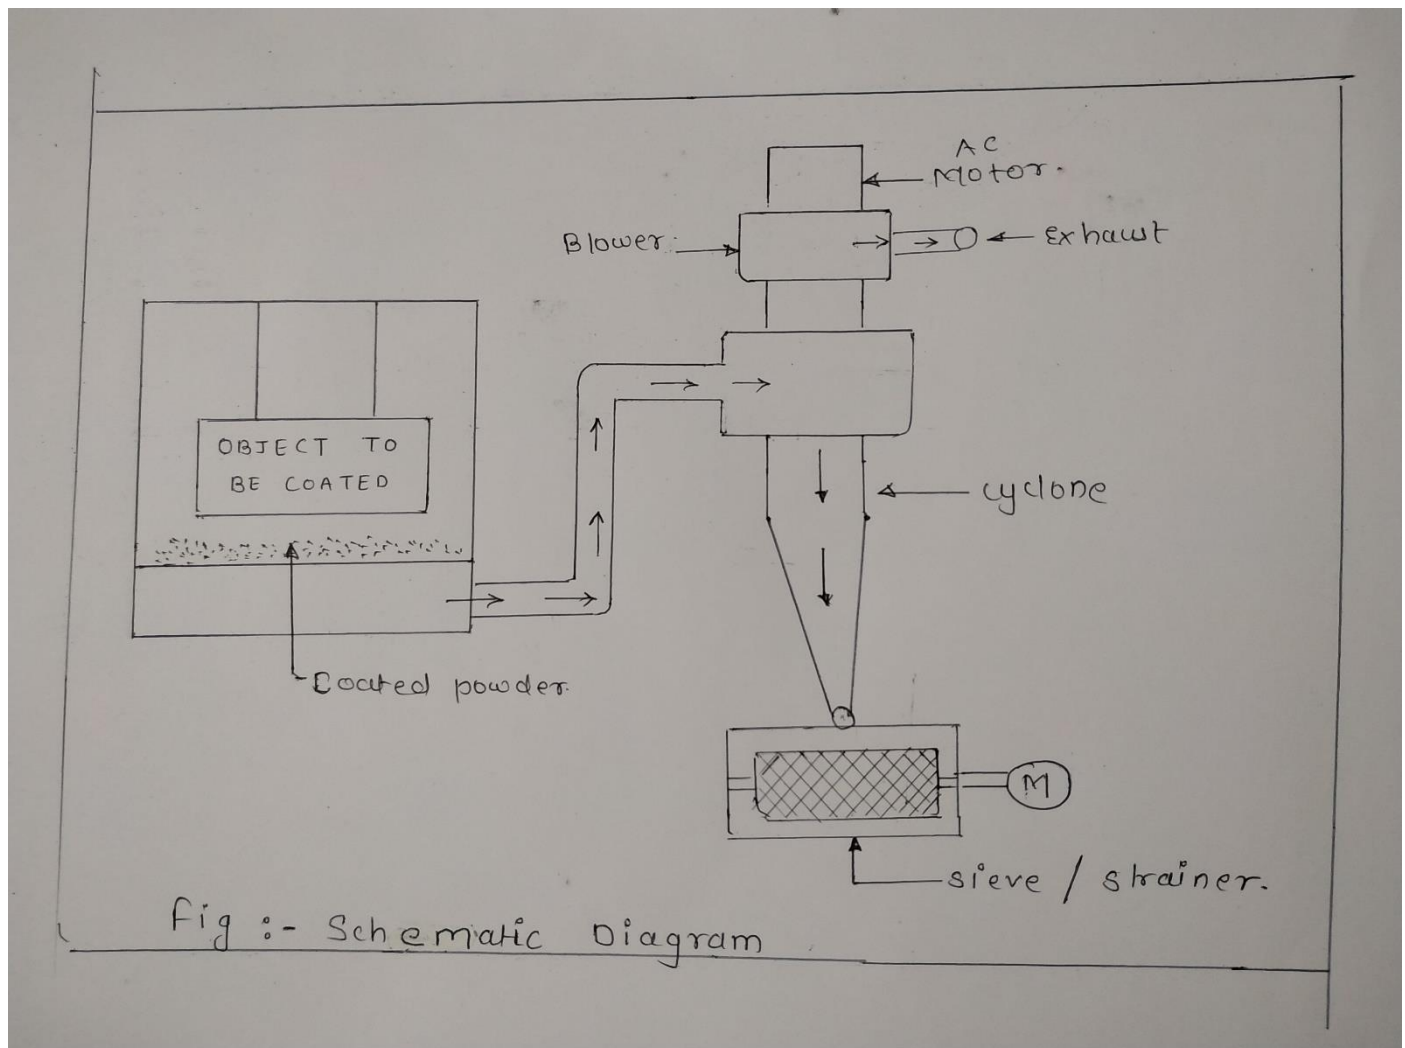 AC
Motor.
Blower.
Exhaust
OBJECT TO
BE COATED
cyclone
Coated powder.
M
sieve / strainer.
Fig :- Schematic Diagram